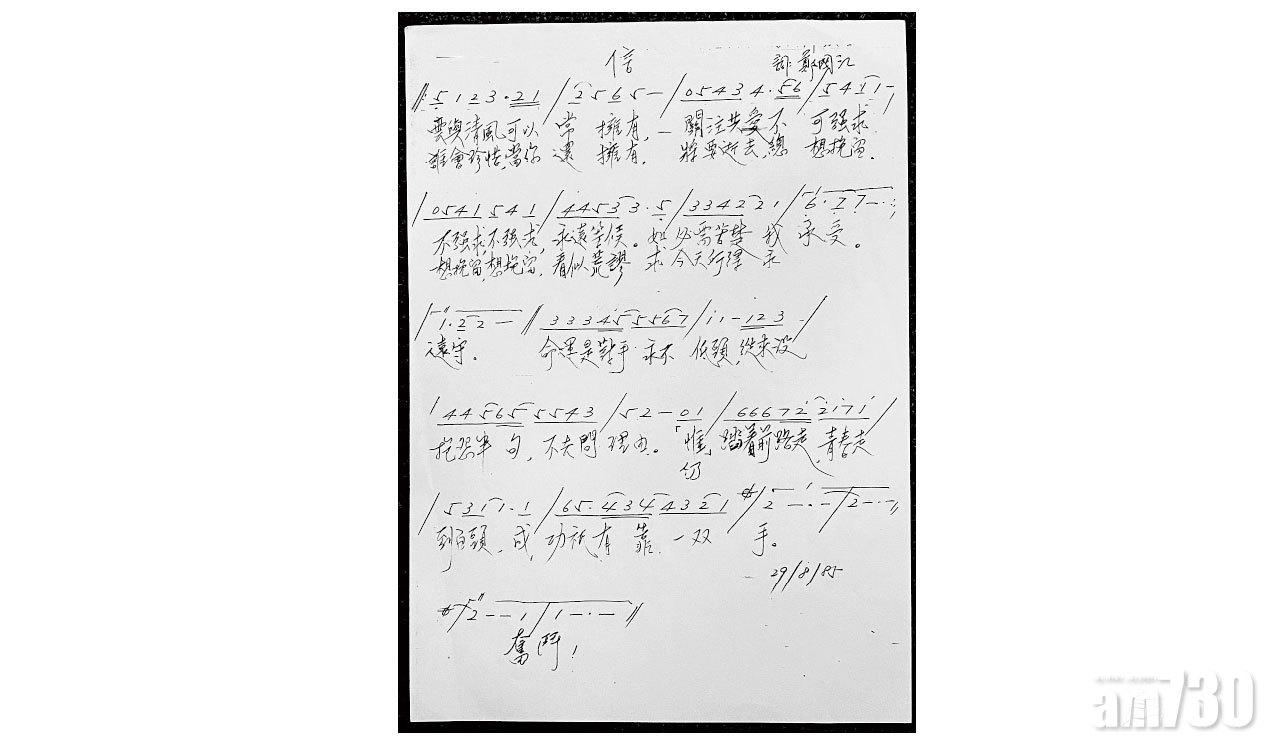 信
詞：鄭國江
5 1 2 3 · 2 1 / 2 5 6 5 – / 0 5 4 3 4 · 5 6 / 5 4 1 1 –
雲與清風可以常擁有，關注共愛不可強求
誰會珍惜，當你還擁有，將要逝去，總想挽留，
/ 0 5 4 1 5 4 1 / 4 4 5 3 3 · 5 / 3 3 4 2 2 1 / 6 · 7 7 – · ·
不強求，不強求，永遠等候。如必需苦楚我承受。
想挽留，想挽留，看似荒謬 求今天行潭永
/ 1 · 2 2 – // 3 3 3 4 5 5 5 6 7 / i i – 1 2 3 /
遠守。 命運是對手永不低頭，從來沒
/ 4 4 5 6 5 5 5 4 3 / 5 2 – 0 1 / 6 6 6 7 2 2 1 7 1 /
抱怨半句，不去問理由。「惟踏着前路走，青春走
仍
/ 5 3 1 1 · 1 / 6 5 · 4 3 4 4 3 2 1 / 2 – · – / 2 – · –
到白頭，成功祇有靠一双手。
29/8/85
/ 2 – – 1 / 1 – · – //
奮鬥！
am730